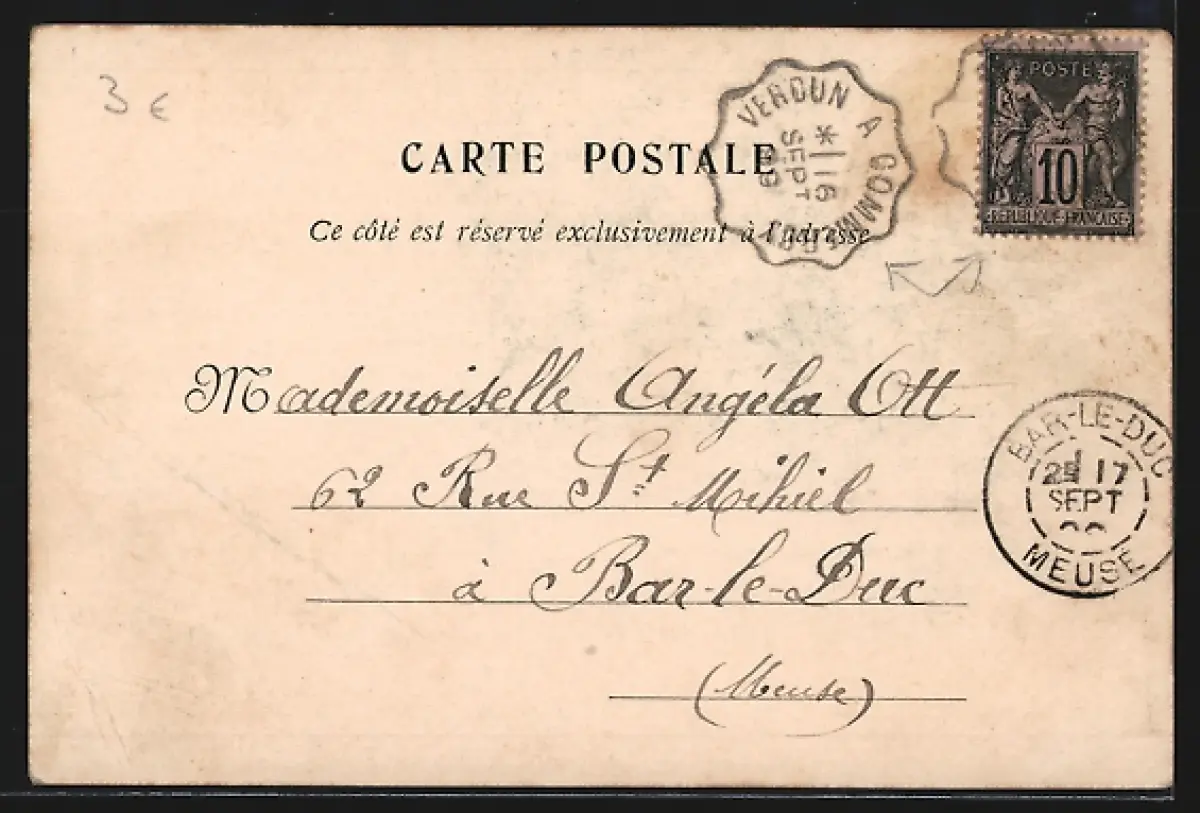 3 €
VERDUN A COMMERCY
*
16
SEPT
POSTE
10
REPUBLIQUE FRANÇAISE
CARTE POSTALE
Ce côté est réservé exclusivement à l'adresse
Mademoiselle Angéla Ott
62 Rue St Mihiel
à Bar-le-Duc
(Meuse)
BAR-LE-DUC
17
SEPT
MEUSE